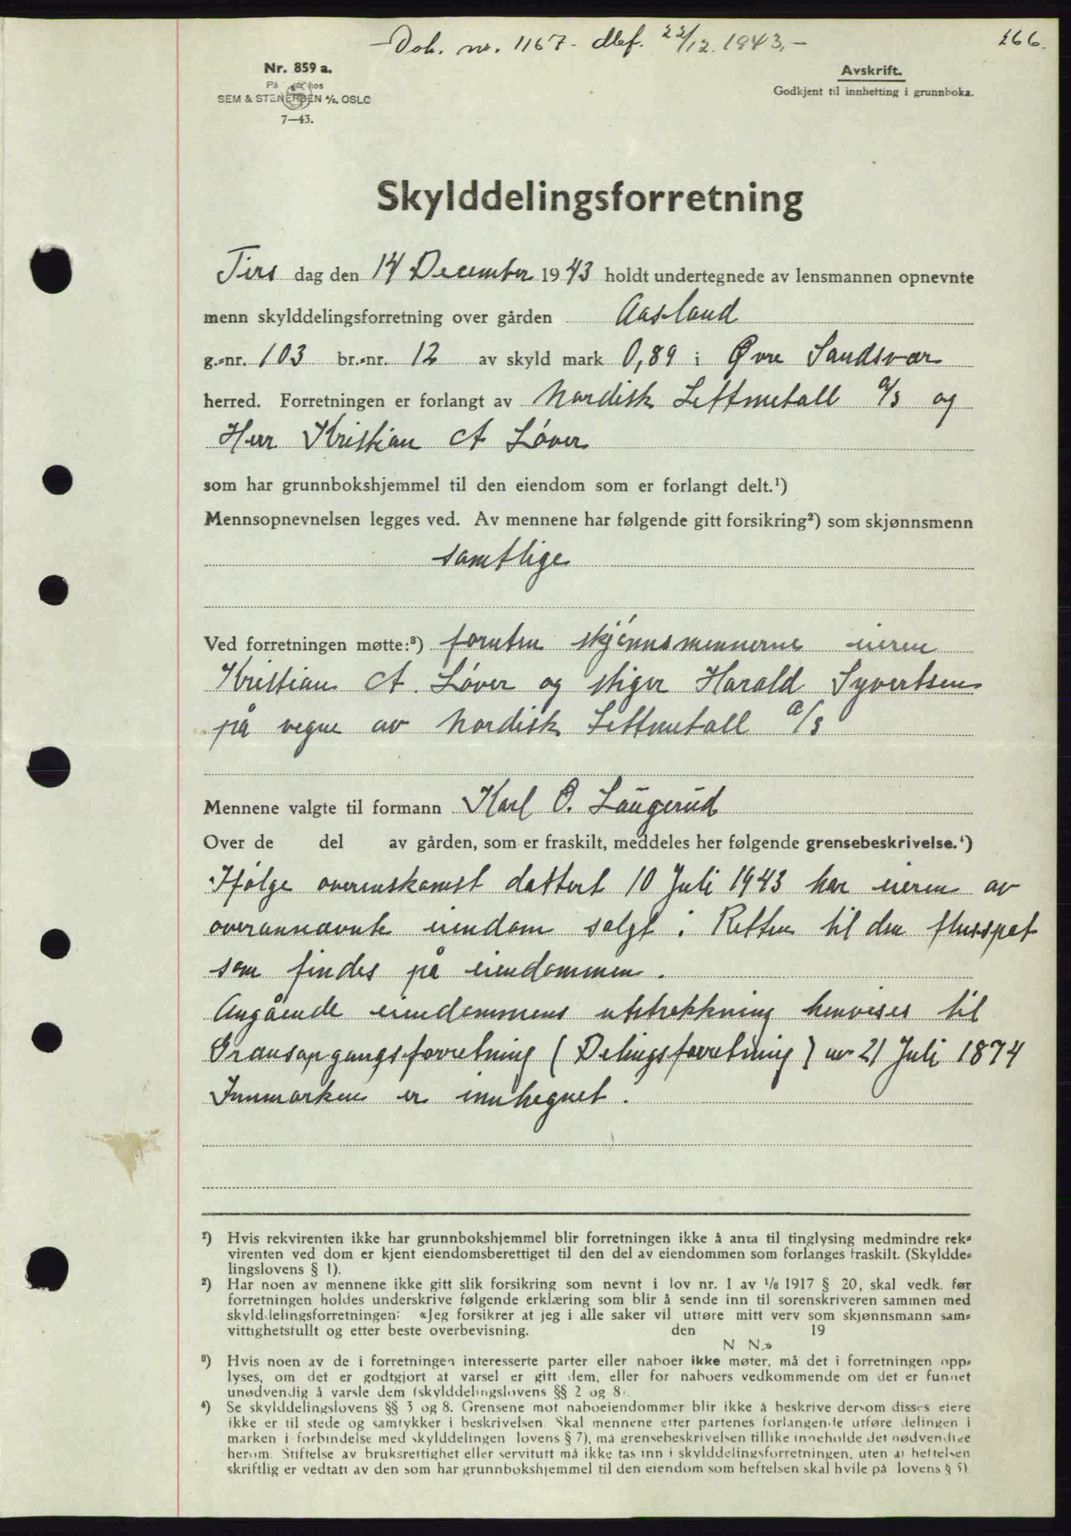 Dok. nr. 1167. 22/12. 1943.-
266.
Nr. 859 a.
SEM & STENERSEN A/S, OSLO
7-43.
Avskrift.
Godkjent til innhefting i grunnboka.
Skylddelingsforretning
Tirs dag den 14 December 1943 holdt undertegnede av lensmannen opnevnte
menn skylddelingsforretning over gården Aasland
g.-nr. 103 br.-nr. 12 av skyld mark 0,89 i Øvre Sandsvær
herred. Forretningen er forlangt av Nordisk Lettmetall A/S og
Herr Kristian A Løver
som har grunnbokshjemmel til den eiendom som er forlangt delt.¹)
Mennsopnevnelsen legges ved. Av mennene har følgende gitt forsikring²) som skjønnsmenn
samtlige
Ved forretningen møtte:³) foruten skjønnsmennerne eieren
Kristian A. Løver og stiger Harald Syvertsen
på vegne av Nordisk Lettmetall A/S
Mennene valgte til formann Karl O. Laugerud
Over de del av gården, som er fraskilt, meddeles her følgende grensebeskrivelse.⁴)
Ifølge overenskomst dattert 10 Juli 1943 har eieren av
overannævnte eiendom solgt: Retten til den flusspat
som findes på eiendommen.
Angående eiendommens utstrekkning henvises til
Grænsopgangsforretning (Delingsforretning) av 21 Juli 1874
Innmarken er innhegnet.
¹) Hvis rekvirenten ikke har grunnbokshjemmel blir forretningen ikke å anta til tinglysing medmindre rek-
virenten ved dom er kjent eiendomsberettiget til den del av eiendommen som forlanges fraskilt. (Skyldde-
lingslovens § 1).
²) Har noen av mennene ikke gitt slik forsikring som nevnt i lov nr. 1 av 1/6 1917 § 20, skal vedk. før
forretningen holdes underskrive følgende erklæring som blir å sende inn til sorenskriveren sammen med
skylddelingsforretningen: «Jeg forsikrer at jeg i alle saker vil utføre mitt verv som skjønnsmann sam-
vittighetsfullt og etter beste overbevisning. den 19
N N.»
³) Hvis noen av de i forretningen interesserte parter eller naboer ikke møter, må det i forretningen opp-
lyses, om det er godtgjort at varsel er gitt dem, eller for naboers vedkommende om det er funnet
unødvendig å varsle dem (skylddelingslovens §§ 2 og 8).
⁴) Se skylddelingslovens §§ 3 og 8. Grensene mot naboeiendommer blir ikke å beskrive dersom disses eiere
ikke er til stede og samtykker i beskrivelsen. Skal mennene etter partenes forlangende utføre delingen i
marken i forbindelse med skylddelingen (lovens § 7), må grensebeskrivelsen tillike inneholde det nødvendige
herom. Stiftelse av bruksrettighet eller servitutt må ikke tas inn i skylddelingsforretningen, uten at heftelsen
skriftlig er vedtatt av den som har grunnbokshjemmel til den eiendom som heftelsen skal hvile på (lovens § 5)